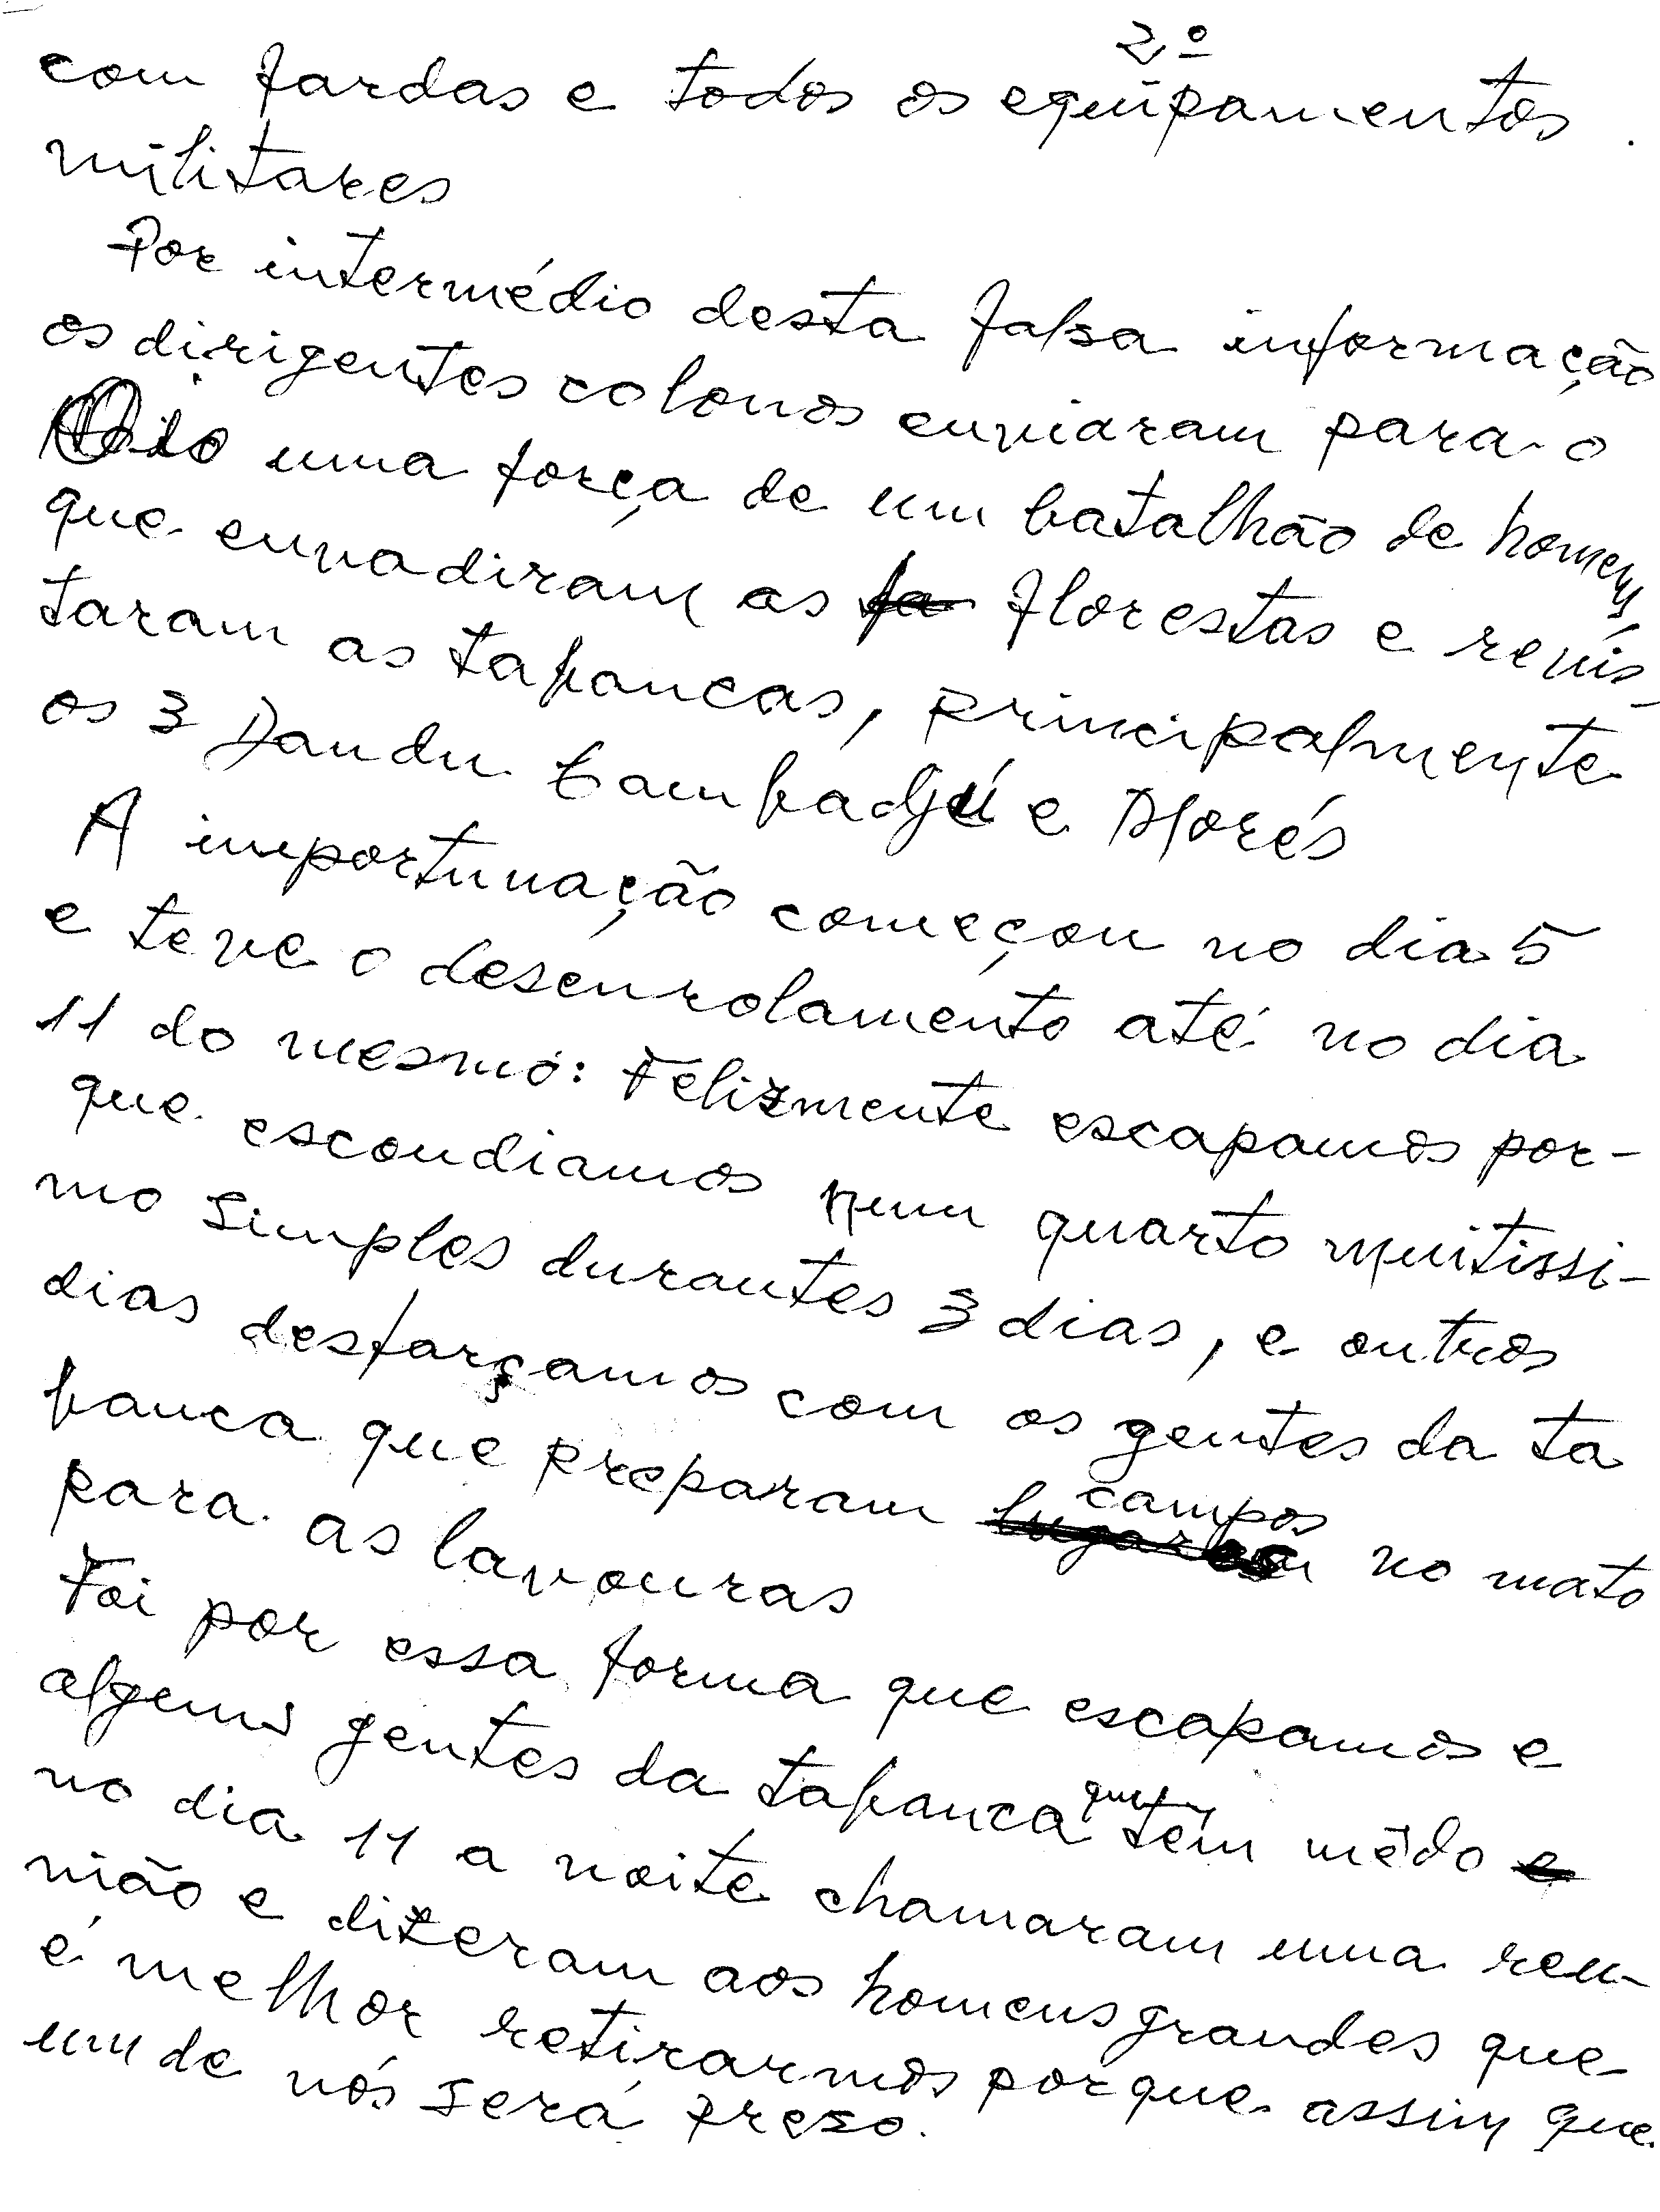 2º
com fardas e todos os equipamentos.
militares
Por intermédio desta falsa informação
os dirigentes colonos enviaram para o
Oio uma força de um batalhão de homens,
que envadiram as fa florestas e revis-
taram as tabancas, principalmente
os 3 Dandu Cambadjú e Morés
A importunação começou no dia 5
e teve o desenrolamento até no dia
11 do mesmo: Felizmente escapamos por-
que escondiamos num quarto muitissi-
mo simples durantes 3 dias, e outros
dias desfarçamos com os gentes da ta
banca que preparam campos no mato
para as lavouras
Foi por essa forma que escapamos e
algens gentes da tabanca que têm mêdo e
no dia 11 a noite chamaram uma reu-
nião e dizeram aos homens grandes que
é melhor retirarmos porque assim que
um de nós será prezo.